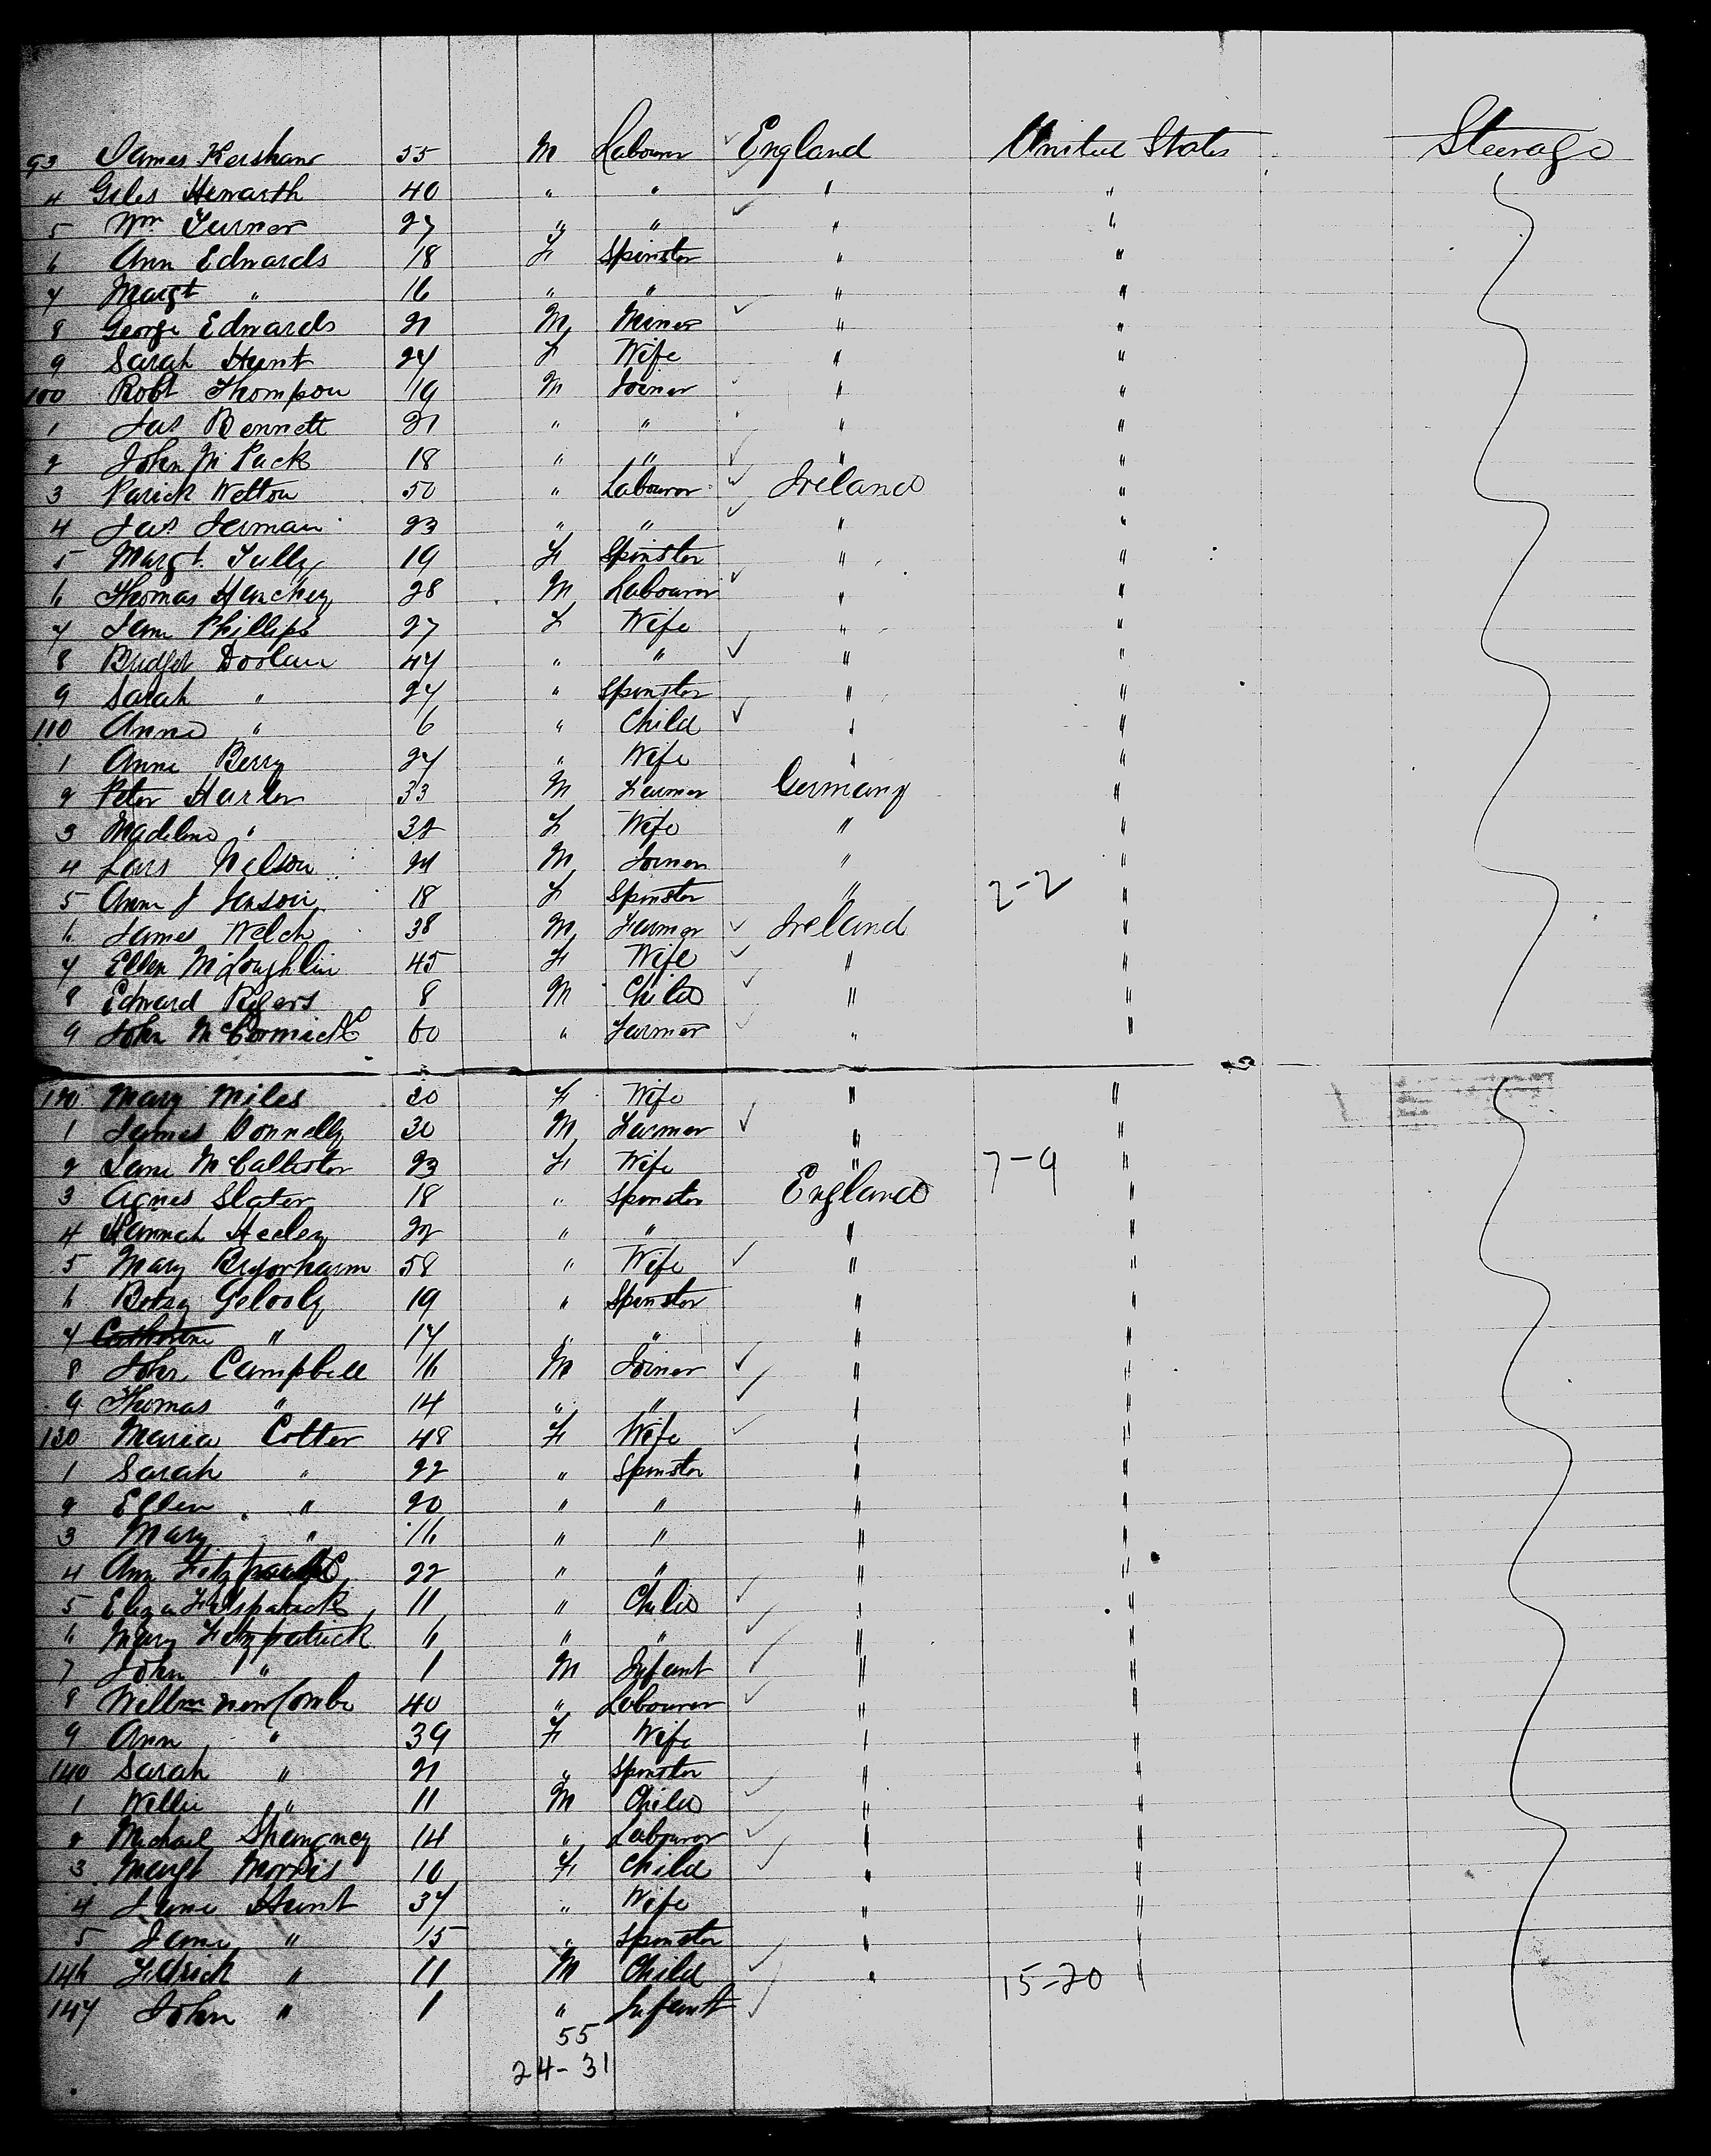 93 James Kershaw 55 M Labourer England United States Steerage
4 Giles Heworth 40 " " " "
5 Wm Turner 27 " " " "
6 Ann Edwards 18 F Spinster " "
7 Margt " 16 " " " "
8 George Edwards 21 M Miner " "
9 Sarah Hunt 24 F Wife " "
100 Robt Thompson 19 M Joiner " "
1 Jas Bennett 21 " " " "
2 John Mc Pack 18 " " " "
3 Parick Welton 50 " Labourer Ireland "
4 Jas 23 " " " "
5 Margt. Tully 19 F Spinster " "
6 Thomas 28 M Labourer " "
7 Jane Phillips 27 F Wife " "
8 Bridget Doolan 47 " " " "
9 Sarah " 24 " Spinster " "
110 Anne " 6 " Child " "
1 Anne Berry 27 " Wife " "
2 Peter Harler 33 M Farmer Germany "
3 Madeline " 32 F Wife " "
4 Lars Nelson 24 M Joiner " "
5 Anne J Jenson 18 F Spinster " 2-2 "
6 James Welch 38 M Farmer Ireland "
7 Ellen McLoughlin 45 F Wife " "
8 Edward Rogers 8 M Child " "
9 John McCormick 60 " Farmer " "
120 Mary Miles 30 F Wife " "
1 James Donnelly 30 M Farmer " "
2 Jane McCallister 23 F Wife " 7-9 "
3 Agnes Slater 18 " Spinster England "
4 Hannah Heeley 22 " " " "
5 Mary 58 " Wife " "
6 Betsy Gelooly 19 " Spinster " "
7 Catherine " 17 " " " "
8 John Campbell 16 M Joiner " "
9 Thomas " 14 " " " "
130 Maria Cotter 48 F Wife " "
1 Sarah " 22 " Spinster " "
2 Ellen " 20 " " " "
3 Mary " 16 " " " "
4 Ann 22 " " " "
5 Eliza Fitzpatrick 11 " Child " "
6 Mary Fitzpatrick 6 " " " "
7 John " 1 M Infant " "
8 Willm Newcombe 40 " Labourer " "
9 Ann " 39 F Wife " "
140 Sarah " 21 " Spinster " "
1 Willie " 11 M Child " "
2 Michael 14 " Labourer " "
3 Margt Morris 10 F Child " "
4 Jane Hunt 37 " Wife " "
5 Jane " 15 " Spinster " "
146 Fedrick " 11 M Child " 15-20 "
147 John " 1 " Infant
55
24-31